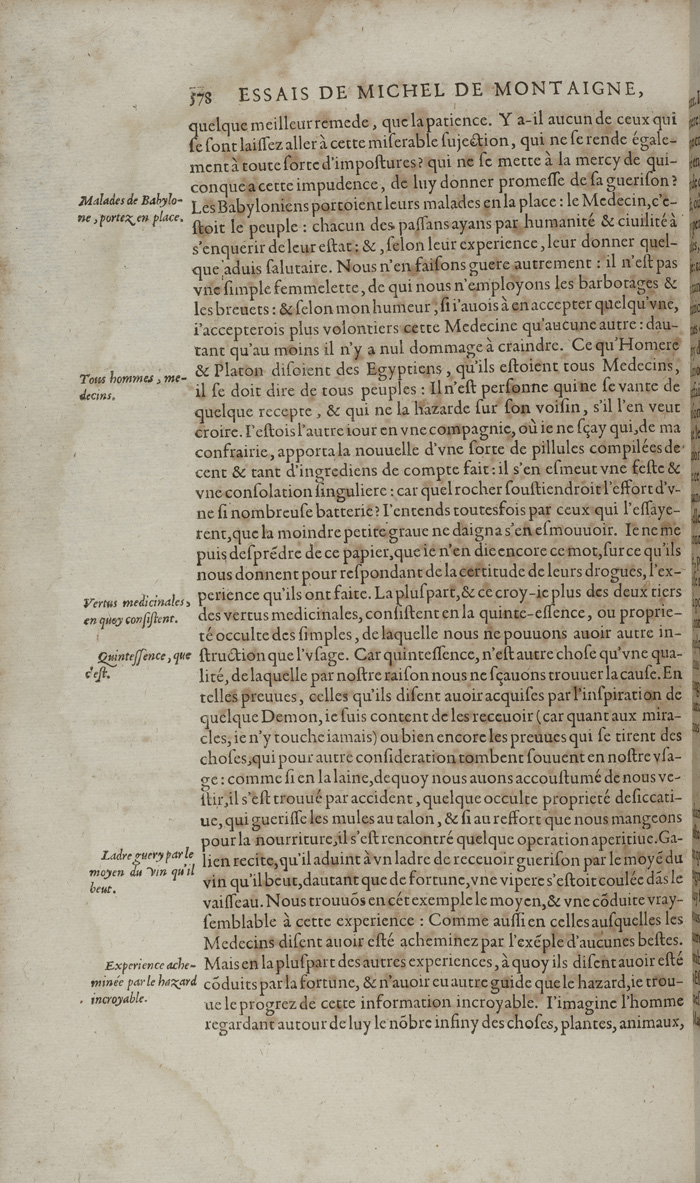 578 ESSAIS DE MICHEL DE MONTAIGNE,
quelque meilleur remede, que la patience. Y a-il aucun de ceux qui
ſe ſont laiſſez aller à cette miſerable ſujection, qui ne ſe rende égale-
ment à toute ſorte d'impoſtures? qui ne ſe mette à la mercy de qui-
conque a cette impudence, de luy donner promeſſe de ſa gueriſon?
Malades de Babylo-
ne, portez en place.
Les Babyloniens portoient leurs malades en la place: le Medecin, c'e-
ſtoit le peuple: chacun des paſſans ayans par humanité & ciuilité à
s'enquerir de leur eſtat: &, ſelon leur experience, leur donner quel-
que aduis ſalutaire. Nous n'en faiſons guere autrement: il n'eſt pas
vne ſimple femmelette, de qui nous n'employons les barbotages &
les breuets: & ſelon mon humeur, ſi i'auois à en accepter quelqu'vne,
i'accepterois plus volontiers cette Medecine qu'aucune autre: dau-
tant qu'au moins il n'y a nul dommage à craindre. Ce qu'Homere
Tous hommes, me-
decins.
& Platon diſoient des Egyptiens, qu'ils eſtoient tous Medecins,
il ſe doit dire de tous peuples: Il n'eſt perſonne qui ne ſe vante de
quelque recepte, & qui ne la hazarde ſur ſon voiſin, s'il l'en veut
croire. I'eſtois l'autre iour en vne compagnie, où ie ne ſçay qui, de ma
confrairie, apporta la nouuelle d'vne ſorte de pillules compilées de
cent & tant d'ingrediens de compte fait: il s'en eſmeut vne feſte &
vne conſolation ſinguliere: car quel rocher ſouſtiendroit l'effort d'v-
ne ſi nombreuſe batterie? I'entends toutesfois par ceux qui l'eſſaye-
rent, que la moindre petite graue ne daigna s'en eſmouuoir. Ie ne me
puis deſprẽdre de ce papier, que ie n'en die encore ce mot, ſur ce qu'ils
nous donnent pour reſpondant de la certitude de leurs drogues, l'ex-
Vertus medicinales,
en quoy conſiſtent.
perience qu'ils ont faite. La pluſpart, & ce croy-ie plus des deux tiers
des vertus medicinales, conſiſtent en la quinte-eſſence, ou proprie-
té occulte des ſimples, de laquelle nous ne pouuons auoir autre in-
Quinteſſence, que
c'eſt.
ſtruction que l'vſage. Car quinteſſence, n'eſt autre choſe qu'vne qua-
lité, de laquelle par noſtre raiſon nous ne ſçauons trouuer la cauſe. En
telles preuues, celles qu'ils diſent auoir acquiſes par l'inſpiration de
quelque Demon, ie ſuis content de les receuoir (car quant aux mira-
cles, ie n'y touche iamais) ou bien encore les preuues qui ſe tirent des
choſes, qui pour autre conſideration tombent ſouuent en noſtre vſa-
ge: comme ſi en la laine, dequoy nous auons accouſtumé de nous ve-
ſtir, il s'eſt trouué par accident, quelque occulte proprieté deſiccati-
ue, qui gueriſſe les mules au talon, & ſi au reffort que nous mangeons
pour la nourriture, il s'eſt rencontré quelque operation aperitiue. Ga-
Ladre guery par le
moyen du vin qu'il
beut.
lien recite, qu'il aduint à vn ladre de receuoir gueriſon par le moyẽ du
vin qu'il beut, dautant que de fortune, vne vipere s'eſtoit coulée dãs le
vaiſſeau. Nous trouuõs en cét exemple le moyen, & vne cõduite vray-
ſemblable à cette experience: Comme auſſi en celles auſquelles les
Medecins diſent auoir eſté acheminez par l'exẽple d'aucunes beſtes.
Experience ache-
minée par le hazard
incroyable.
Mais en la pluſpart des autres experiences, à quoy ils diſent auoir eſté
cõduits par la fortune, & n'auoir eu autre guide que le hazard, ie trou-
ue le progrez de cette information incroyable. I'imagine l'homme
regardant autour de luy le nõbre infiny des choſes, plantes, animaux,